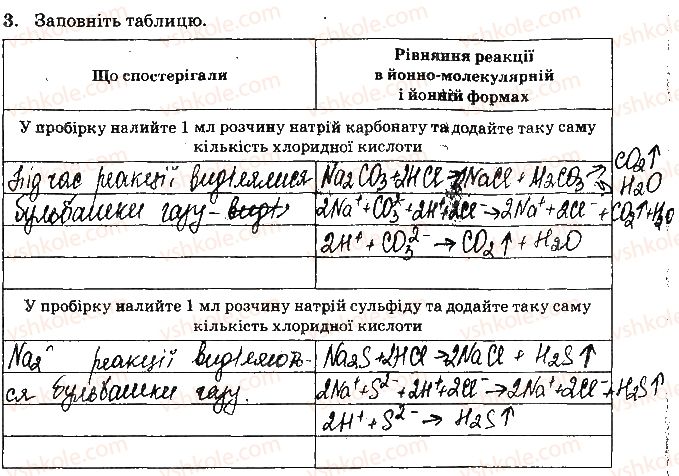 3. Заповніть таблицю.
Що спостерігали
Рівняння реакції
в йонно-молекулярній
і йонній формах
У пробірку налийте 1 мл розчину натрій карбонату та додайте таку саму
кількість хлоридної кислоти
Під час реакції виділялися
бульбашки газу
Na2CO3+2HCl → 2NaCl + H2CO3 → CO2↑
H2O
2Na⁺+CO3²⁻+2H⁺+2Cl⁻→2Na⁺+2Cl⁻+CO2↑+H2O
2H⁺ + CO3²⁻ → CO2↑ + H2O
У пробірку налийте 1 мл розчину натрій сульфіду та додайте таку саму
кількість хлоридної кислоти
Na2 реакції виділяють-
ся бульбашки газу.
Na2S+2HCl→2NaCl + H2S↑
2Na⁺+S²⁻+2H⁺+2Cl⁻→2Na⁺+2Cl⁻+H2S↑
2H⁺ + S²⁻ → H2S↑
vshkole.com